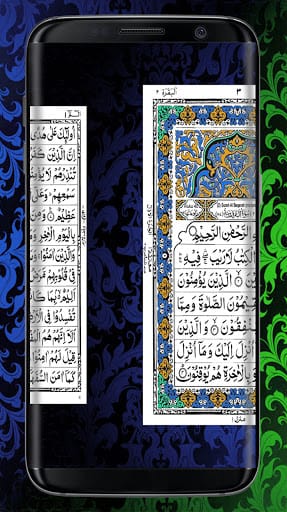 ٣
اَلْبَقَرَة ٢
الرَّحْمٰنِ الرَّحِيْمِ
الْكِتٰبُ لَا رَيْبَ فِيْهِ
الَّذِيْنَ يُؤْمِنُوْنَ
يُقِيْمُوْنَ الصَّلٰوةَ وَمِمَّا
يُنْفِقُوْنَ وَالَّذِيْنَ
اُنْزِلَ اِلَيْكَ وَمَا اُنْزِلَ
بِالْاٰخِرَةِ هُمْ يُوْقِنُوْنَ
اُولٰٓئِكَ عَلٰى هُدًى
اِنَّ الَّذِيْنَ كَفَرُ
تُنْذِرْهُمْ لَا يُؤْ
سَمْعِهِمْ وَعَلٰٓى
عَظِيْمٌ
بِالْيَوْمِ الْاٰخِرِ وَمَ
الَّذِيْنَ اٰمَنُوْا
فِيْ قُلُوْبِهِمْ مَّرَ
اَلِيْمٌ بِمَا كَا
تُفْسِدُوْا فِي الْ
اَلَآ اِنَّهُمْ هُمُ
قِيْلَ لَهُمْ اٰمِنُ
كَمَآ اٰمَنَ السُّفَهَ